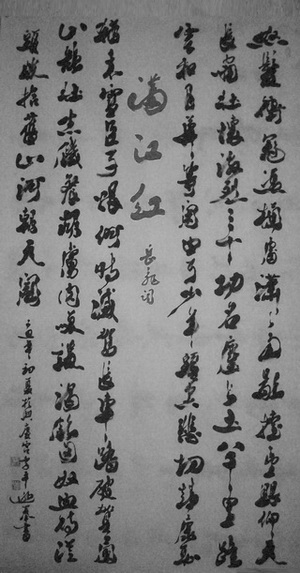 怒髮衝冠憑欄處瀟瀟雨歇擡望眼仰天
長嘯壯懷激烈三十功名塵與土八千里路
雲和月莫等閒白了少年頭空悲切靖康恥
滿江紅
岳飛詞
猶未雪臣子恨何時滅駕長車踏破賀蘭
山缺壯志飢餐胡虜肉笑談渴飲匈奴血待從
頭收拾舊山河朝天闕
年初夏
書